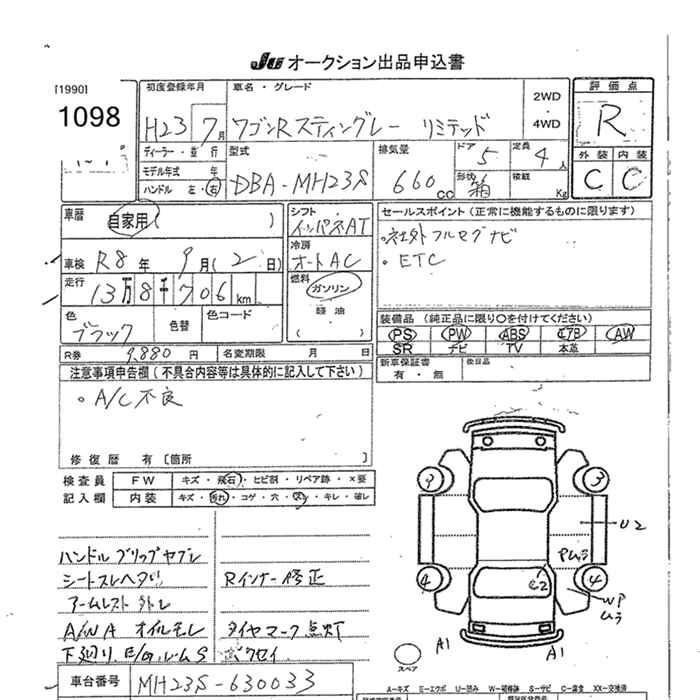 JU オークション出品申込書
[1990]
1098
初度登録年月
H23 7月
車名・グレード
ワゴンRスティングレー リミテッド
2WD
・
4WD
評価点
R
外装 内装
C C
ディーラー・並行
モデル年式 年
ハンドル 左・右
型式
DBA-MH23S
排気量
660 cc
ドア 5
定員 4人
形状 箱
積載 Kg
車歴
自家用( )
シフト
インパネAT
冷房
オートAC
燃料
ガソリン
軽油
( )
セールスポイント(正常に機能するものに限ります)
・社外フルセグナビ
・ETC
車検 R8年 9月(2日)
走行
13万8千706km
色
ブラック
色替
色コード
装備品(純正品に限り〇を付けてください)
PS PW ABS エアB AW
SR ナビ TV 本革
R券 9,880円 名変期限 月 日
新車保証書
有・無
後日品
注意事項申告欄(不具合内容等は具体的に記入して下さい)
・A/C不良
修復歴 有〔箇所 〕
検査員
記入欄
FW キズ・飛石・ヒビ割・リペア跡・×要
内装 キズ・汚れ・コゲ・穴・スレ・キレ・破レ
ハンドルグリップヤブレ
シートスレヘタリ
アームレスト外レ
A/W A オイルモレ
下廻り
Rインナー修正
タイヤマーク点灯
3
4
4
U2
Pムラ
C2
WP
ムラ
A1
A1
スペア
車台番号 MH23S-630033
A=キズ E=エクボ U=凹み W=補修跡 S=サビ C=腐食 XX=交換済